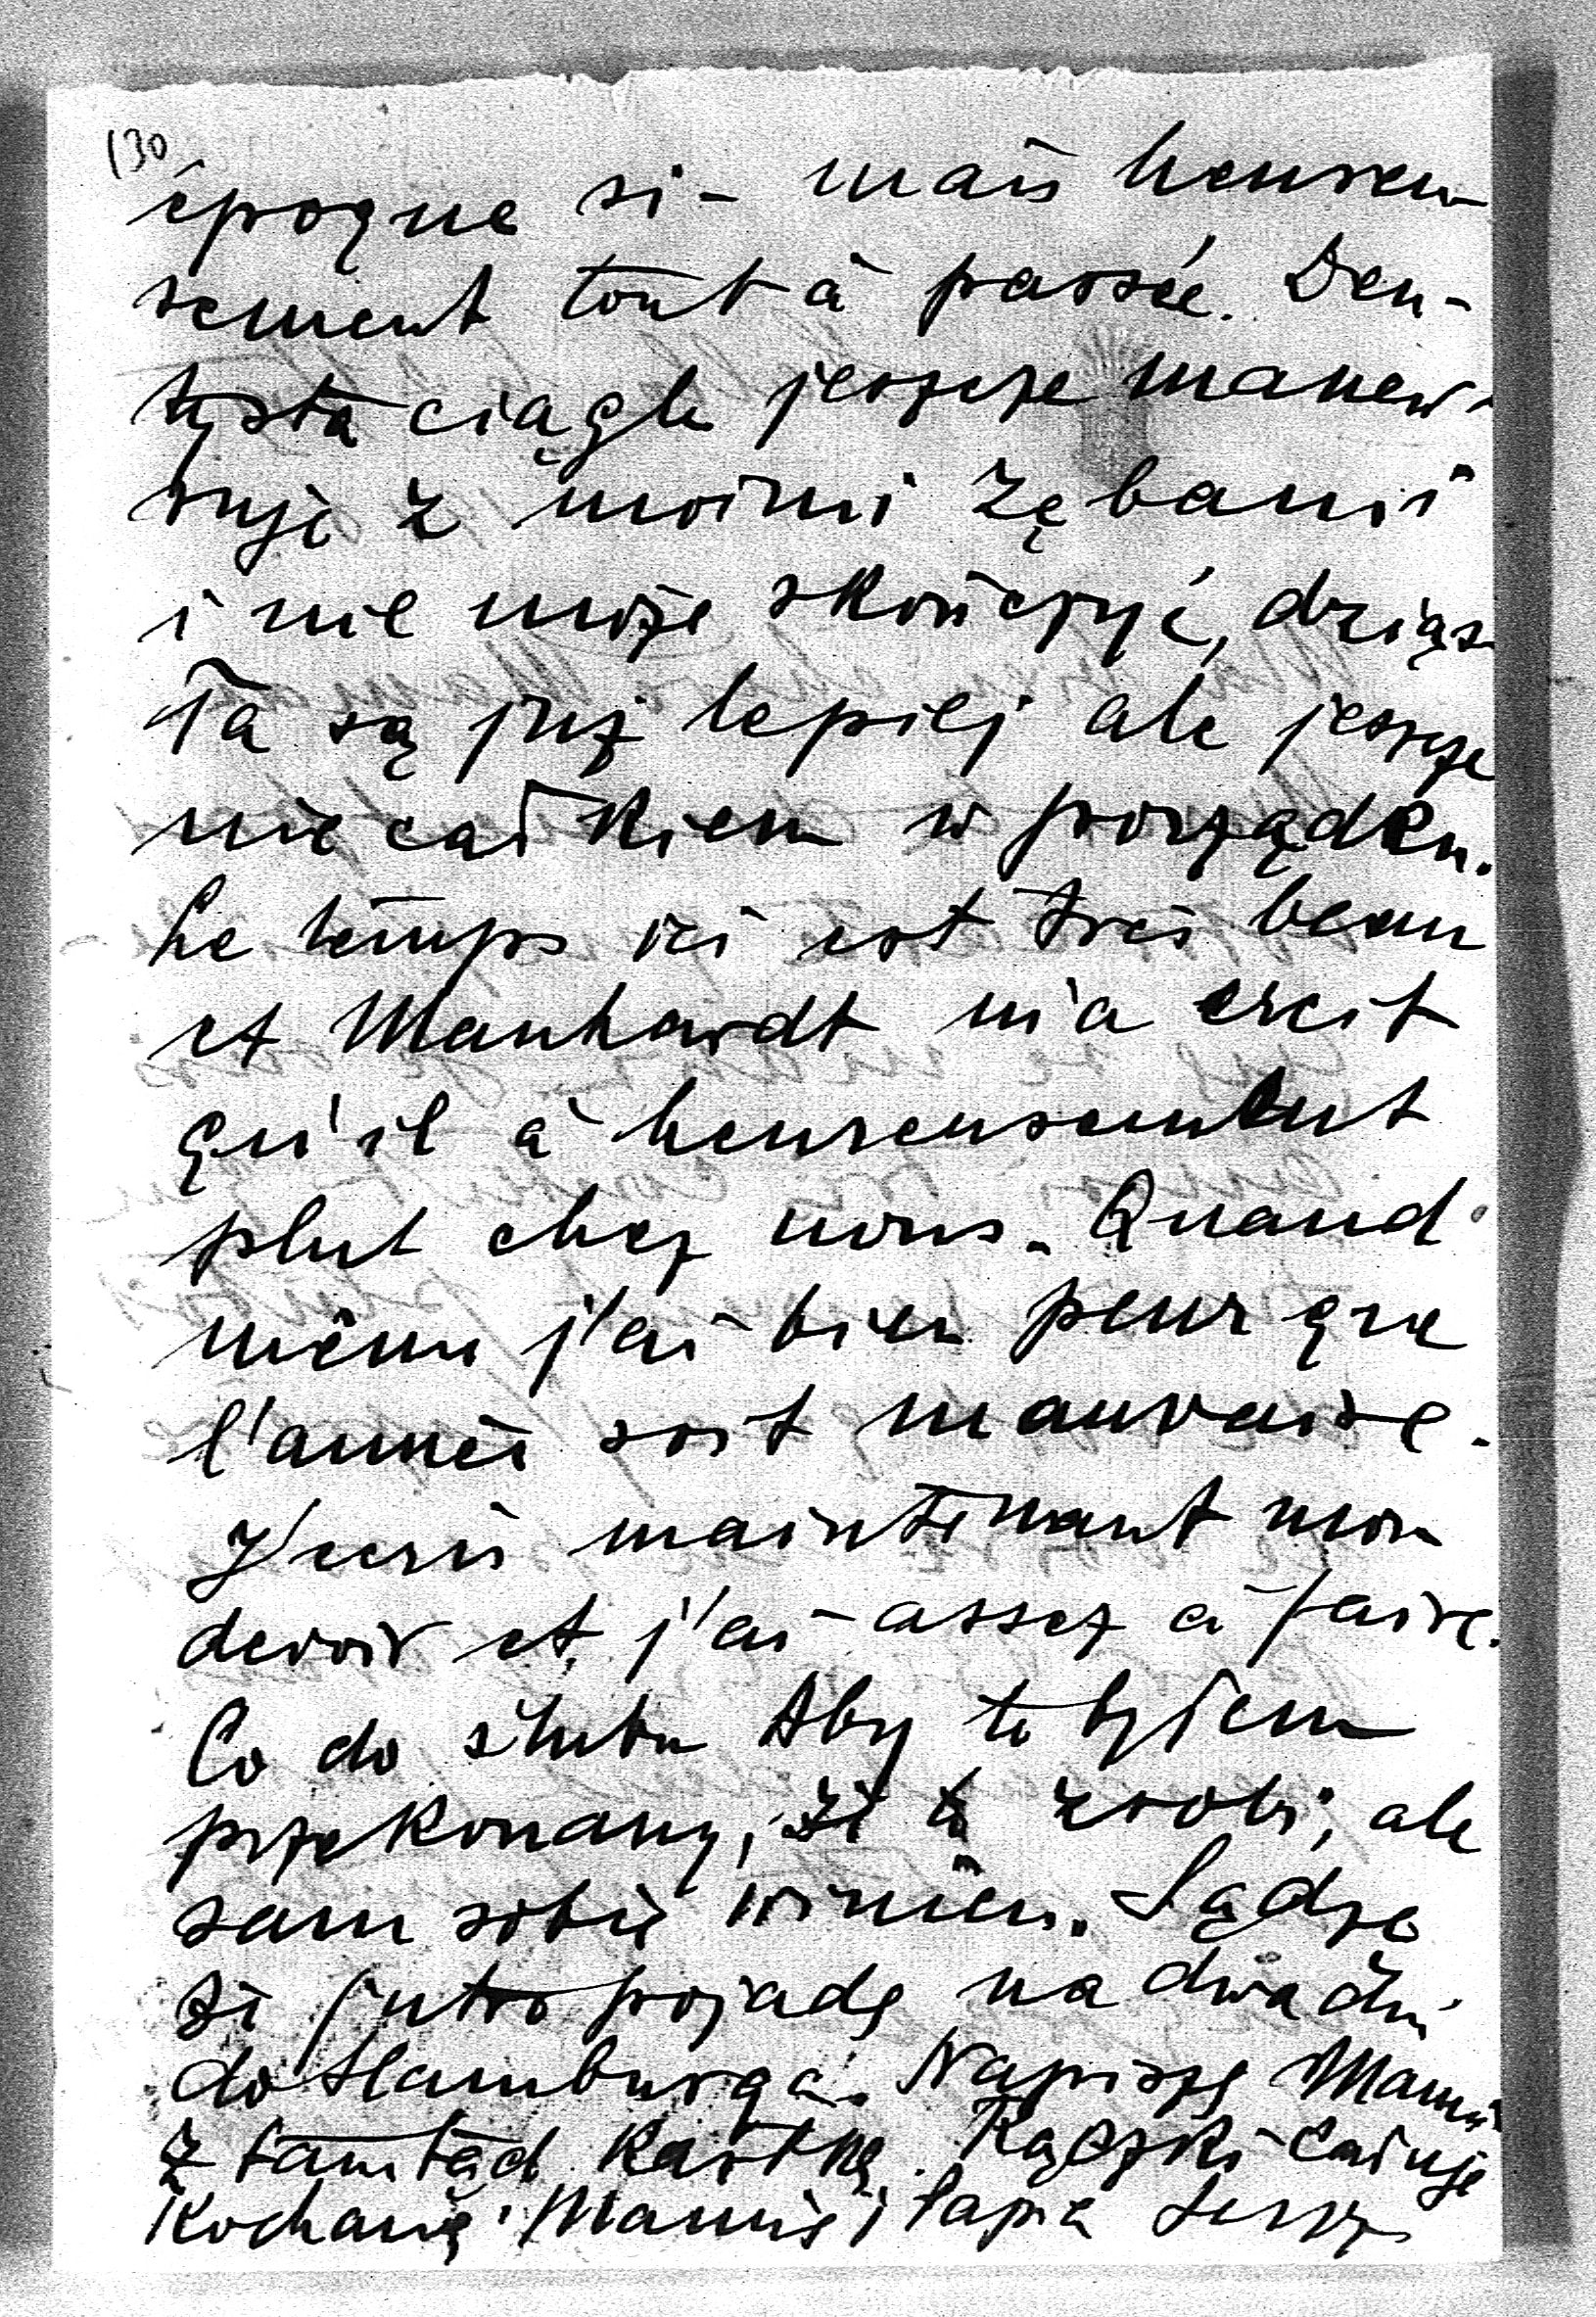 130
époque si - mais heureu-
sement tout à passée. Den-
tysta ciągle jeszcze manew-
ruje z moimi zębami
i nie może skończyć, dziąs-
ła są już lepiej ale jeszcze
nie całkiem w porządku.
Le temps ici est très beau
et Manhardt m'a ecrit
qu'il à heureusement
plut chez nous. Quand
même j'ai bien peur que
l'année soit mauvaise.
J'ecris maintenant mon
devoir et j'ai assez à faire.
Co do ślubu Aby to byłem
przekonany, że to zrobi, ale
sam sobie winien. Sądzę
że jutro pojadę na dwa dni
do Hamburga. Napiszę Mamie
z tamtąd kartkę. Rączki całuje
Kochanę Mamie i Papie Jerzy